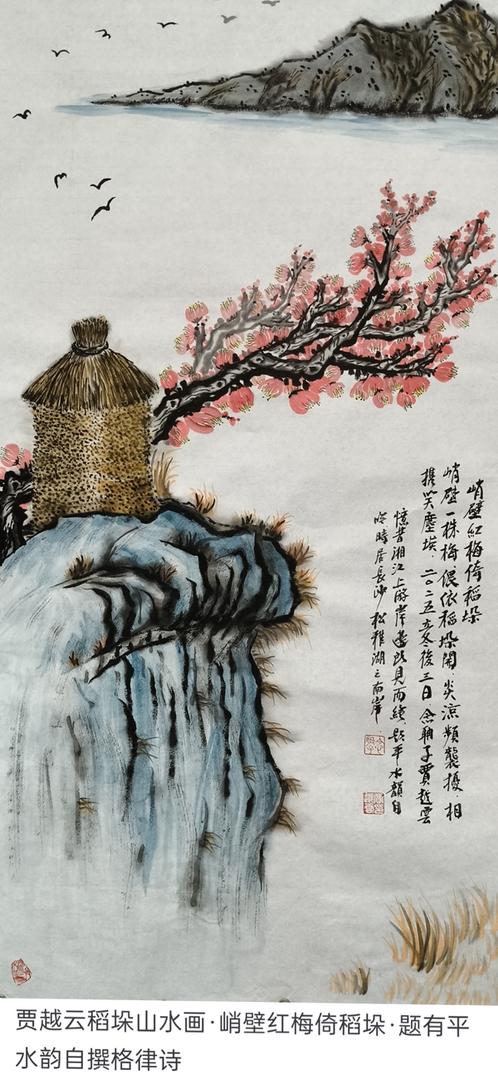 峭壁紅梅倚稻垛
峭壁一株梅偎依稻垛開炎涼頻襲擾相
攜笑塵埃 二〇二五立冬後三日 賈越雲
憶昔湘江上游岸邊路見而繪題平水韻自
吟時居長沙松雅湖之南岸
贾越云稻垛山水画·峭壁红梅倚稻垛·题有平
水韵自撰格律诗